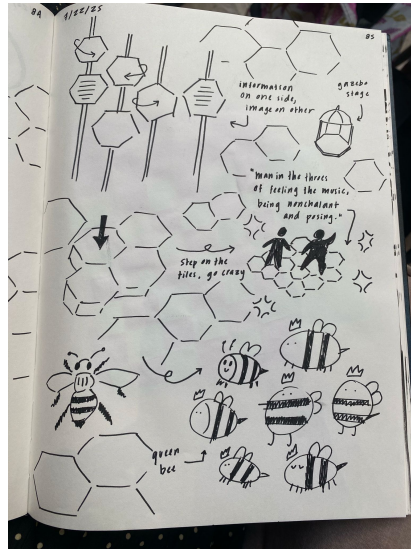 84
1/22/25
85
information
on one side,
image on other
gazebo
stage
"man in the throes
of feeling the music,
being nonchalant
and posing."
Step on the
tiles, go crazy
queen
bee